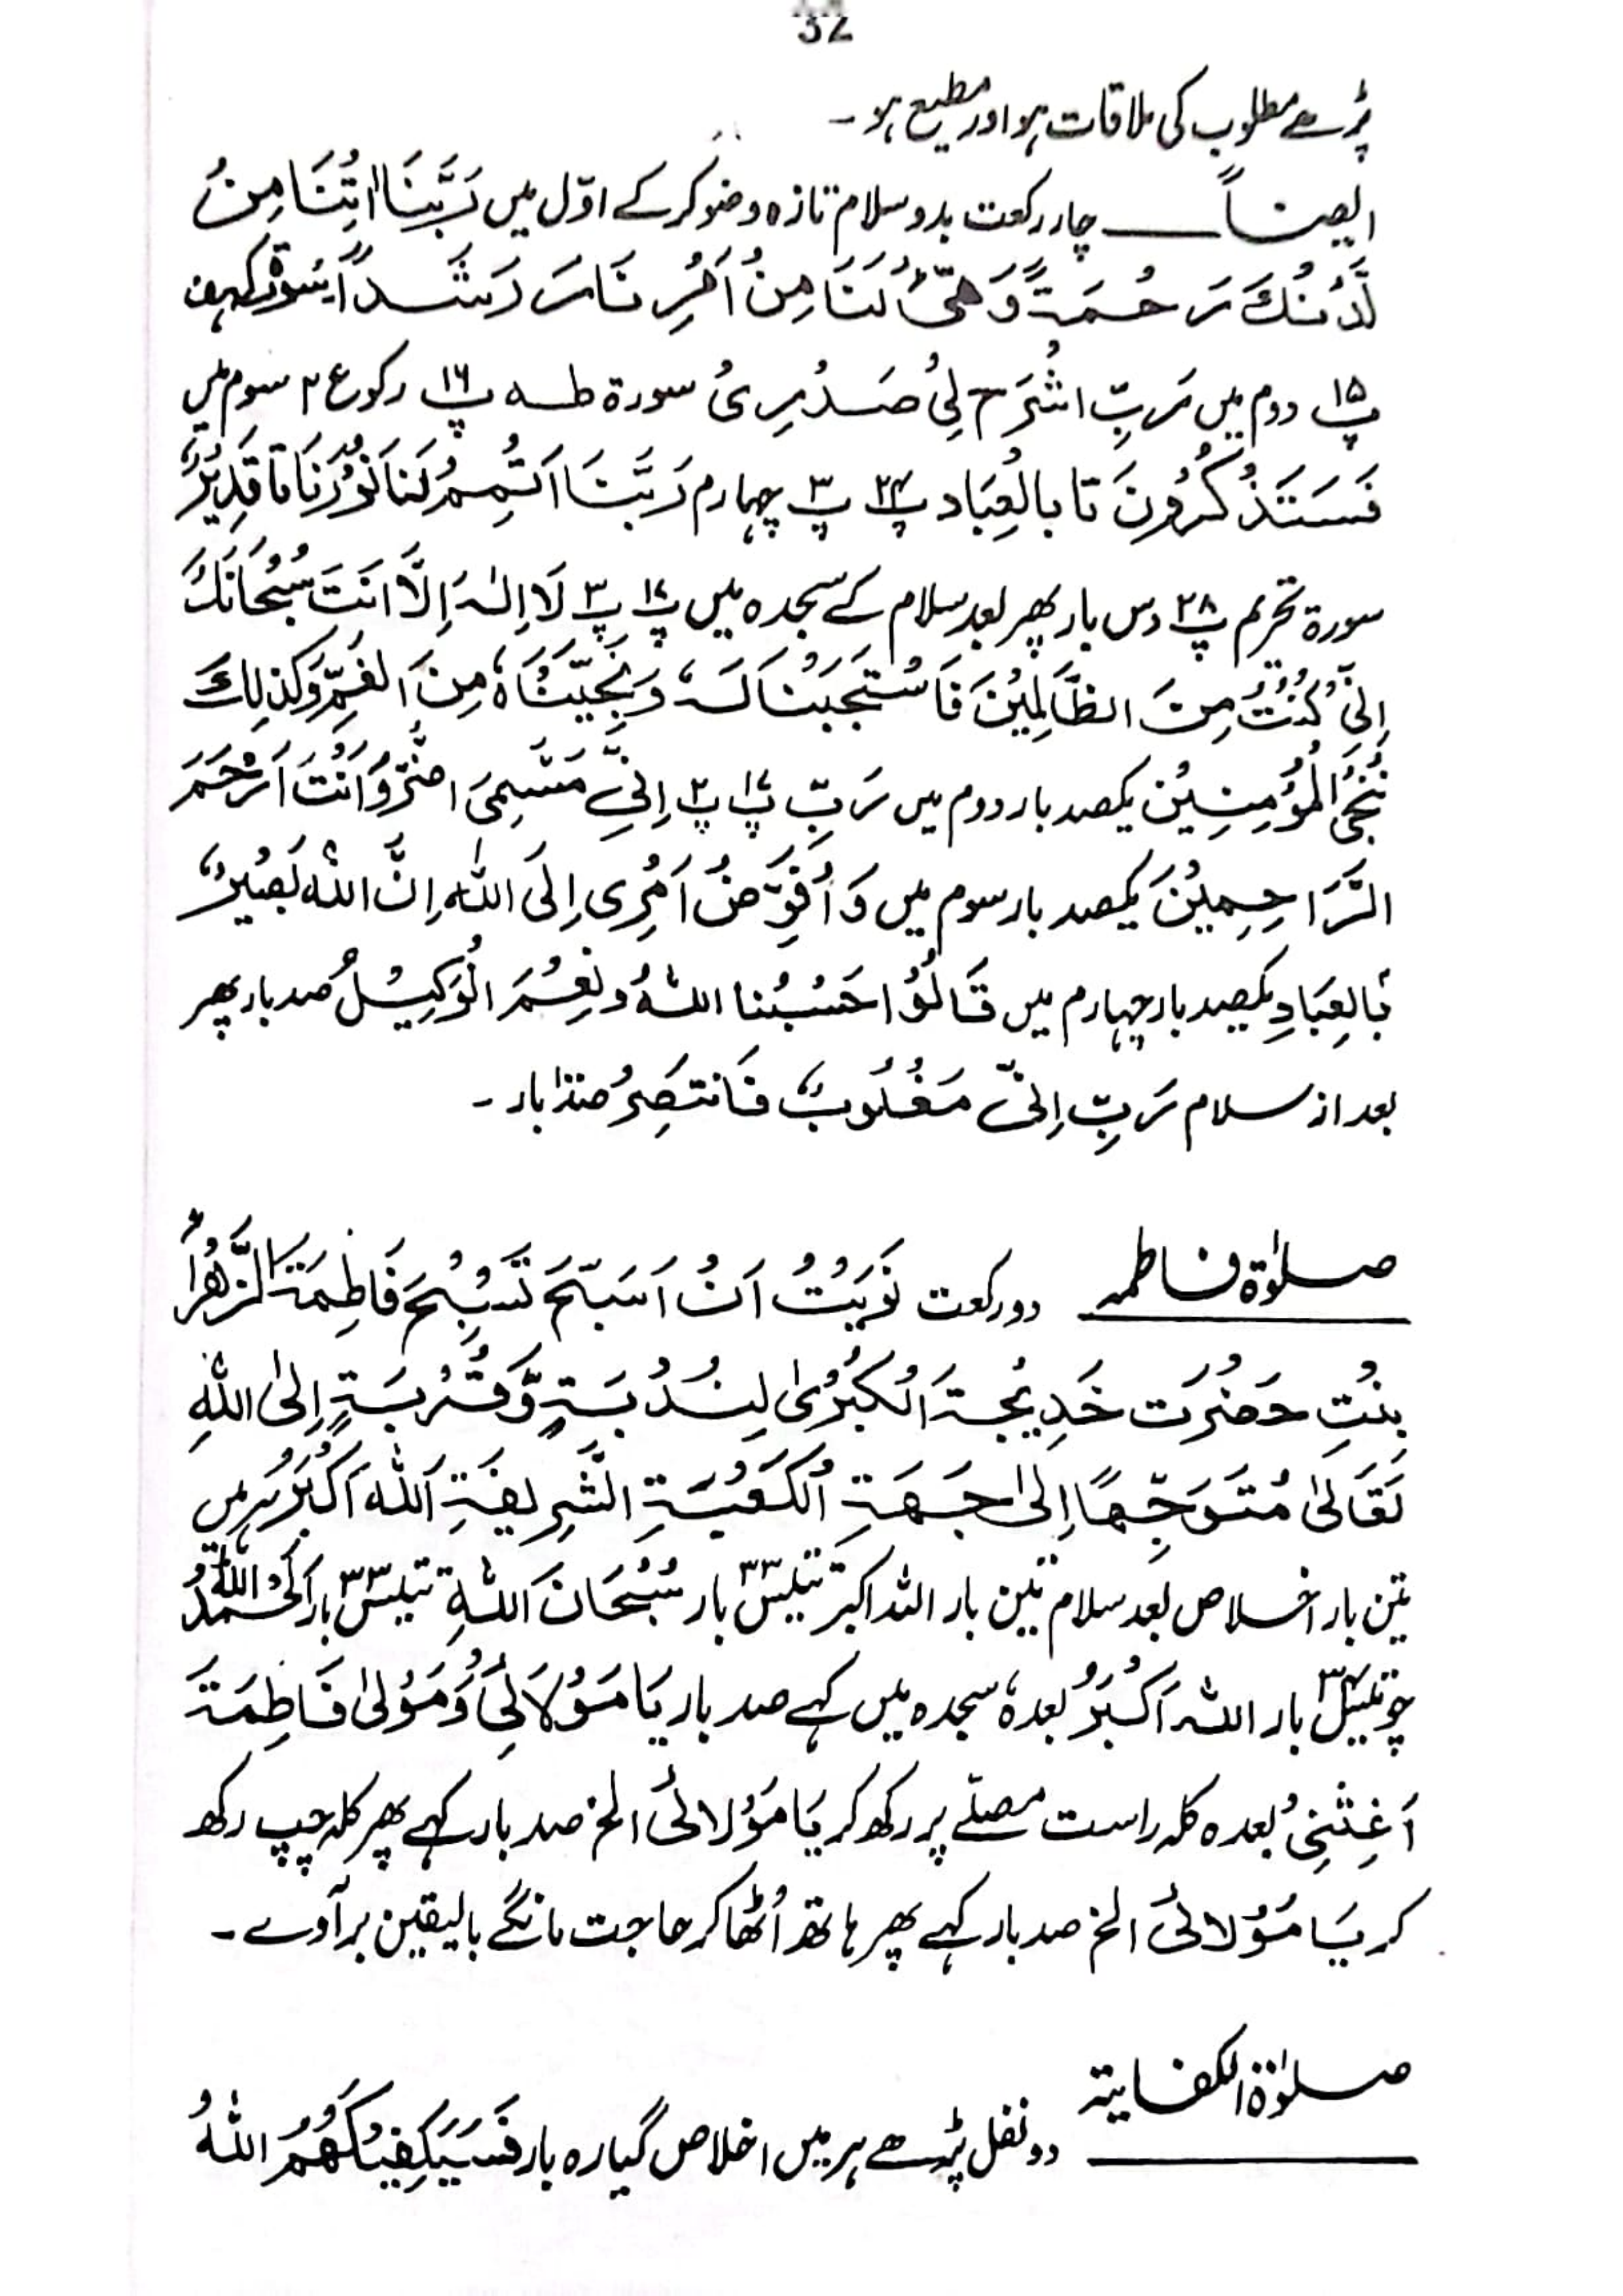 32
پڑھے مطلوب کی ملاقات ہو اور مطیع ہو۔
ایضاً چار رکعت بدو سلام تازہ وضو کرکے اوّل میں رَبَّنَا اٰتِنَا مِنْ
لَّدُنْكَ رَحْمَةً وَّهَيِّئْ لَنَا مِنْ اَمْرِنَا رَشَدًا سورۃ کہف
پ ۱۵ دوم میں رَبِّ اشْرَحْ لِيْ صَدْرِيْ سورۃ طٰہٰ پ ۱۶ رکوع ۲ سوم میں
فَسَتَذْكُرُوْنَ تا بالْعِبَاد پ ۲۴ پ ۳ چہارم رَبَّنَا اَتْمِمْ لَنَا نُوْرَنَا تا قَدِيْرٌ
سورۃ تحریم پ ۲۸ دس بار پھر بعد سلام کے سجدہ میں پ ۱۷ پ ۳ لَا اِلٰهَ اِلَّا اَنْتَ سُبْحَانَكَ
اِنِّيْ كُنْتُ مِنَ الظَّالِمِيْنَ فَاسْتَجَبْنَا لَهٗ وَنَجَّيْنَاهُ مِنَ الْغَمِّ وَكَذٰلِكَ
نُنْجِي الْمُؤْمِنِيْنَ یکصد بار دوم میں رَبِّ پ ۱۷ پ ۲ اِنِّيْ مَسَّنِيَ الضُّرُّ وَاَنْتَ اَرْحَمَ
الرَّاحِمِيْنَ یکصد بار سوم میں وَاُفَوِّضُ اَمْرِي اِلَى اللّٰهِ اِنَّ اللّٰهَ بَصِيْرٌ
بِالْعِبَادِ یکصد بار چہارم میں قَالُوْا حَسْبُنَا اللّٰهُ وَنِعْمَ الْوَكِيْلُ صد بار پھر
بعد از سلام رَبِّ اِنِّيْ مَغْلُوْبٌ فَانْتَصِرْ صد بار۔
صلوٰۃ فاطمہ دو رکعت نَوَيْتُ اَنْ اُسَبِّحَ تَسْبِيْحَ فَاطِمَةَ الزَّهْرَاْ
بِنْتِ حَضْرَت خَدِيْجَةَ الْكُبْرٰى لِنُدْبَةٍ وَّقُرْبَةٍ اِلَى اللّٰهِ
تَعَالٰى مُتَوَجِّهًا اِلٰى جِهَةِ الْكَعْبَةِ الشَّرِيفَةِ اَللّٰهُ اَكْبَرُ ہر میں
تین بار اخلاص بعد سلام تین بار اللہ اکبر تینتیس ۳۳ بار سُبْحَانَ اللّٰهِ تینتیس ۳۳ بار اَلْحَمْدُ لِلّٰهِ
چونتیس ۳۴ بار اللّٰهُ اَكْبَرُ بعدہٗ سجدہ میں کہے صد بار يَا مَوْلَائِيْ وَمَوْلٰى فَاطِمَةَ
اَغِثْنِيْ بعدہ کلہ راست مصلّے پر رکھ کر يَا مَوْلَائِيْ الخ صد بار کہے پھر کلہ چپ رکھ
کر يَا مَوْلَائِيْ الخ صد بار کہے پھر ہاتھ اُٹھا کر حاجت مانگے بالیقین برآوے۔
صلوٰۃ الکفایتہ
دو نفل پڑھے ہر میں اخلاص گیارہ بار فَسَيَكْفِيْكَهُمُ اللّٰهُ